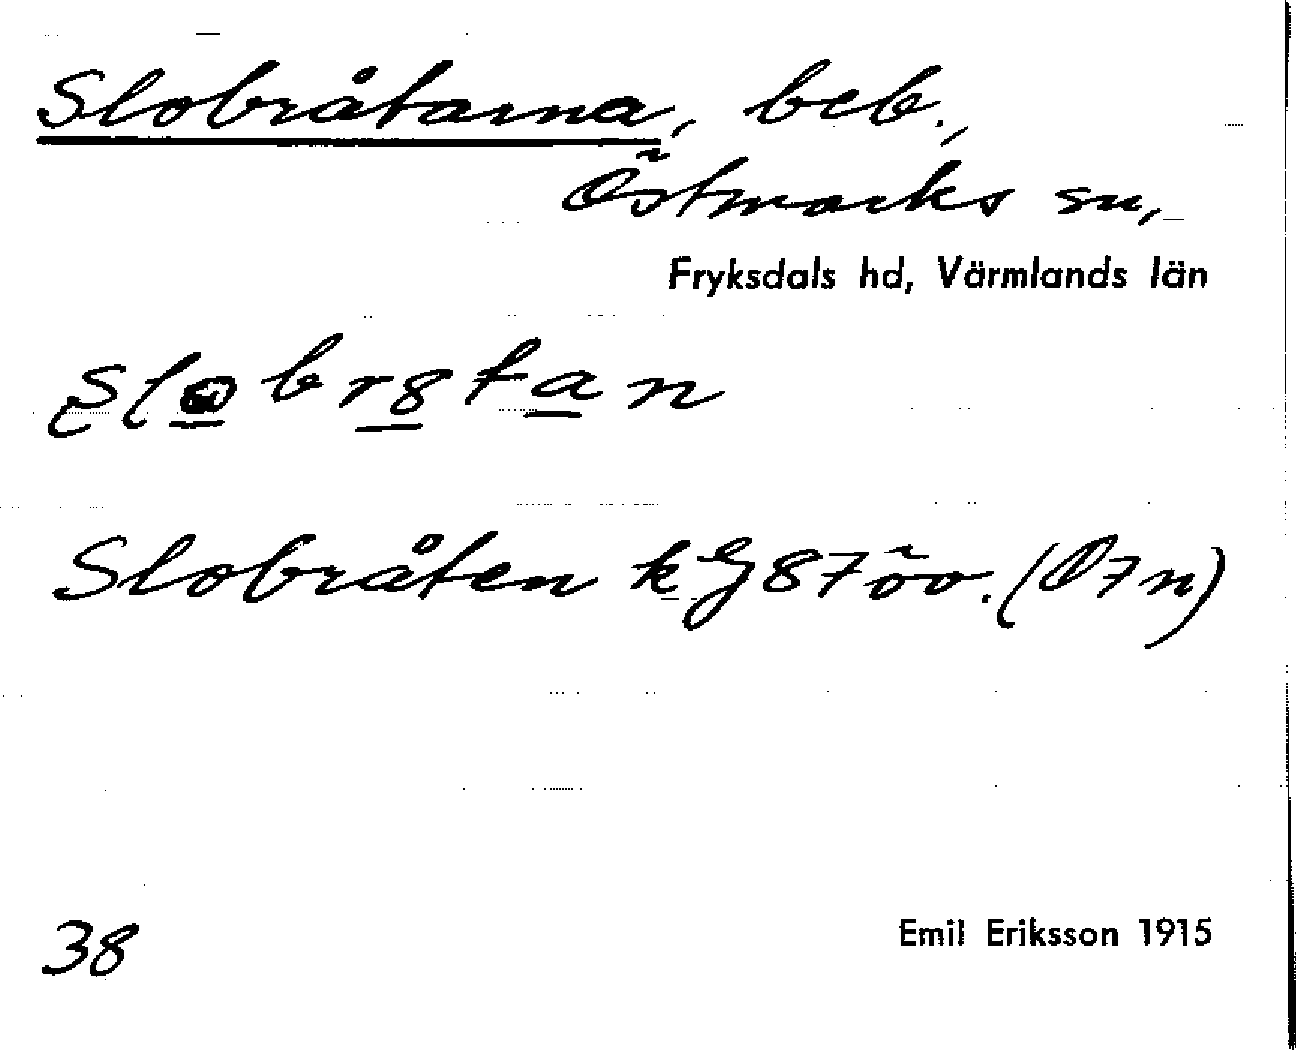 Slobråtarna, beb.,
Östmarks sn,
Fryksdals hd, Värmlands län
Slobråten kG 87 öv. (O7n)
38
Emil Eriksson 1915